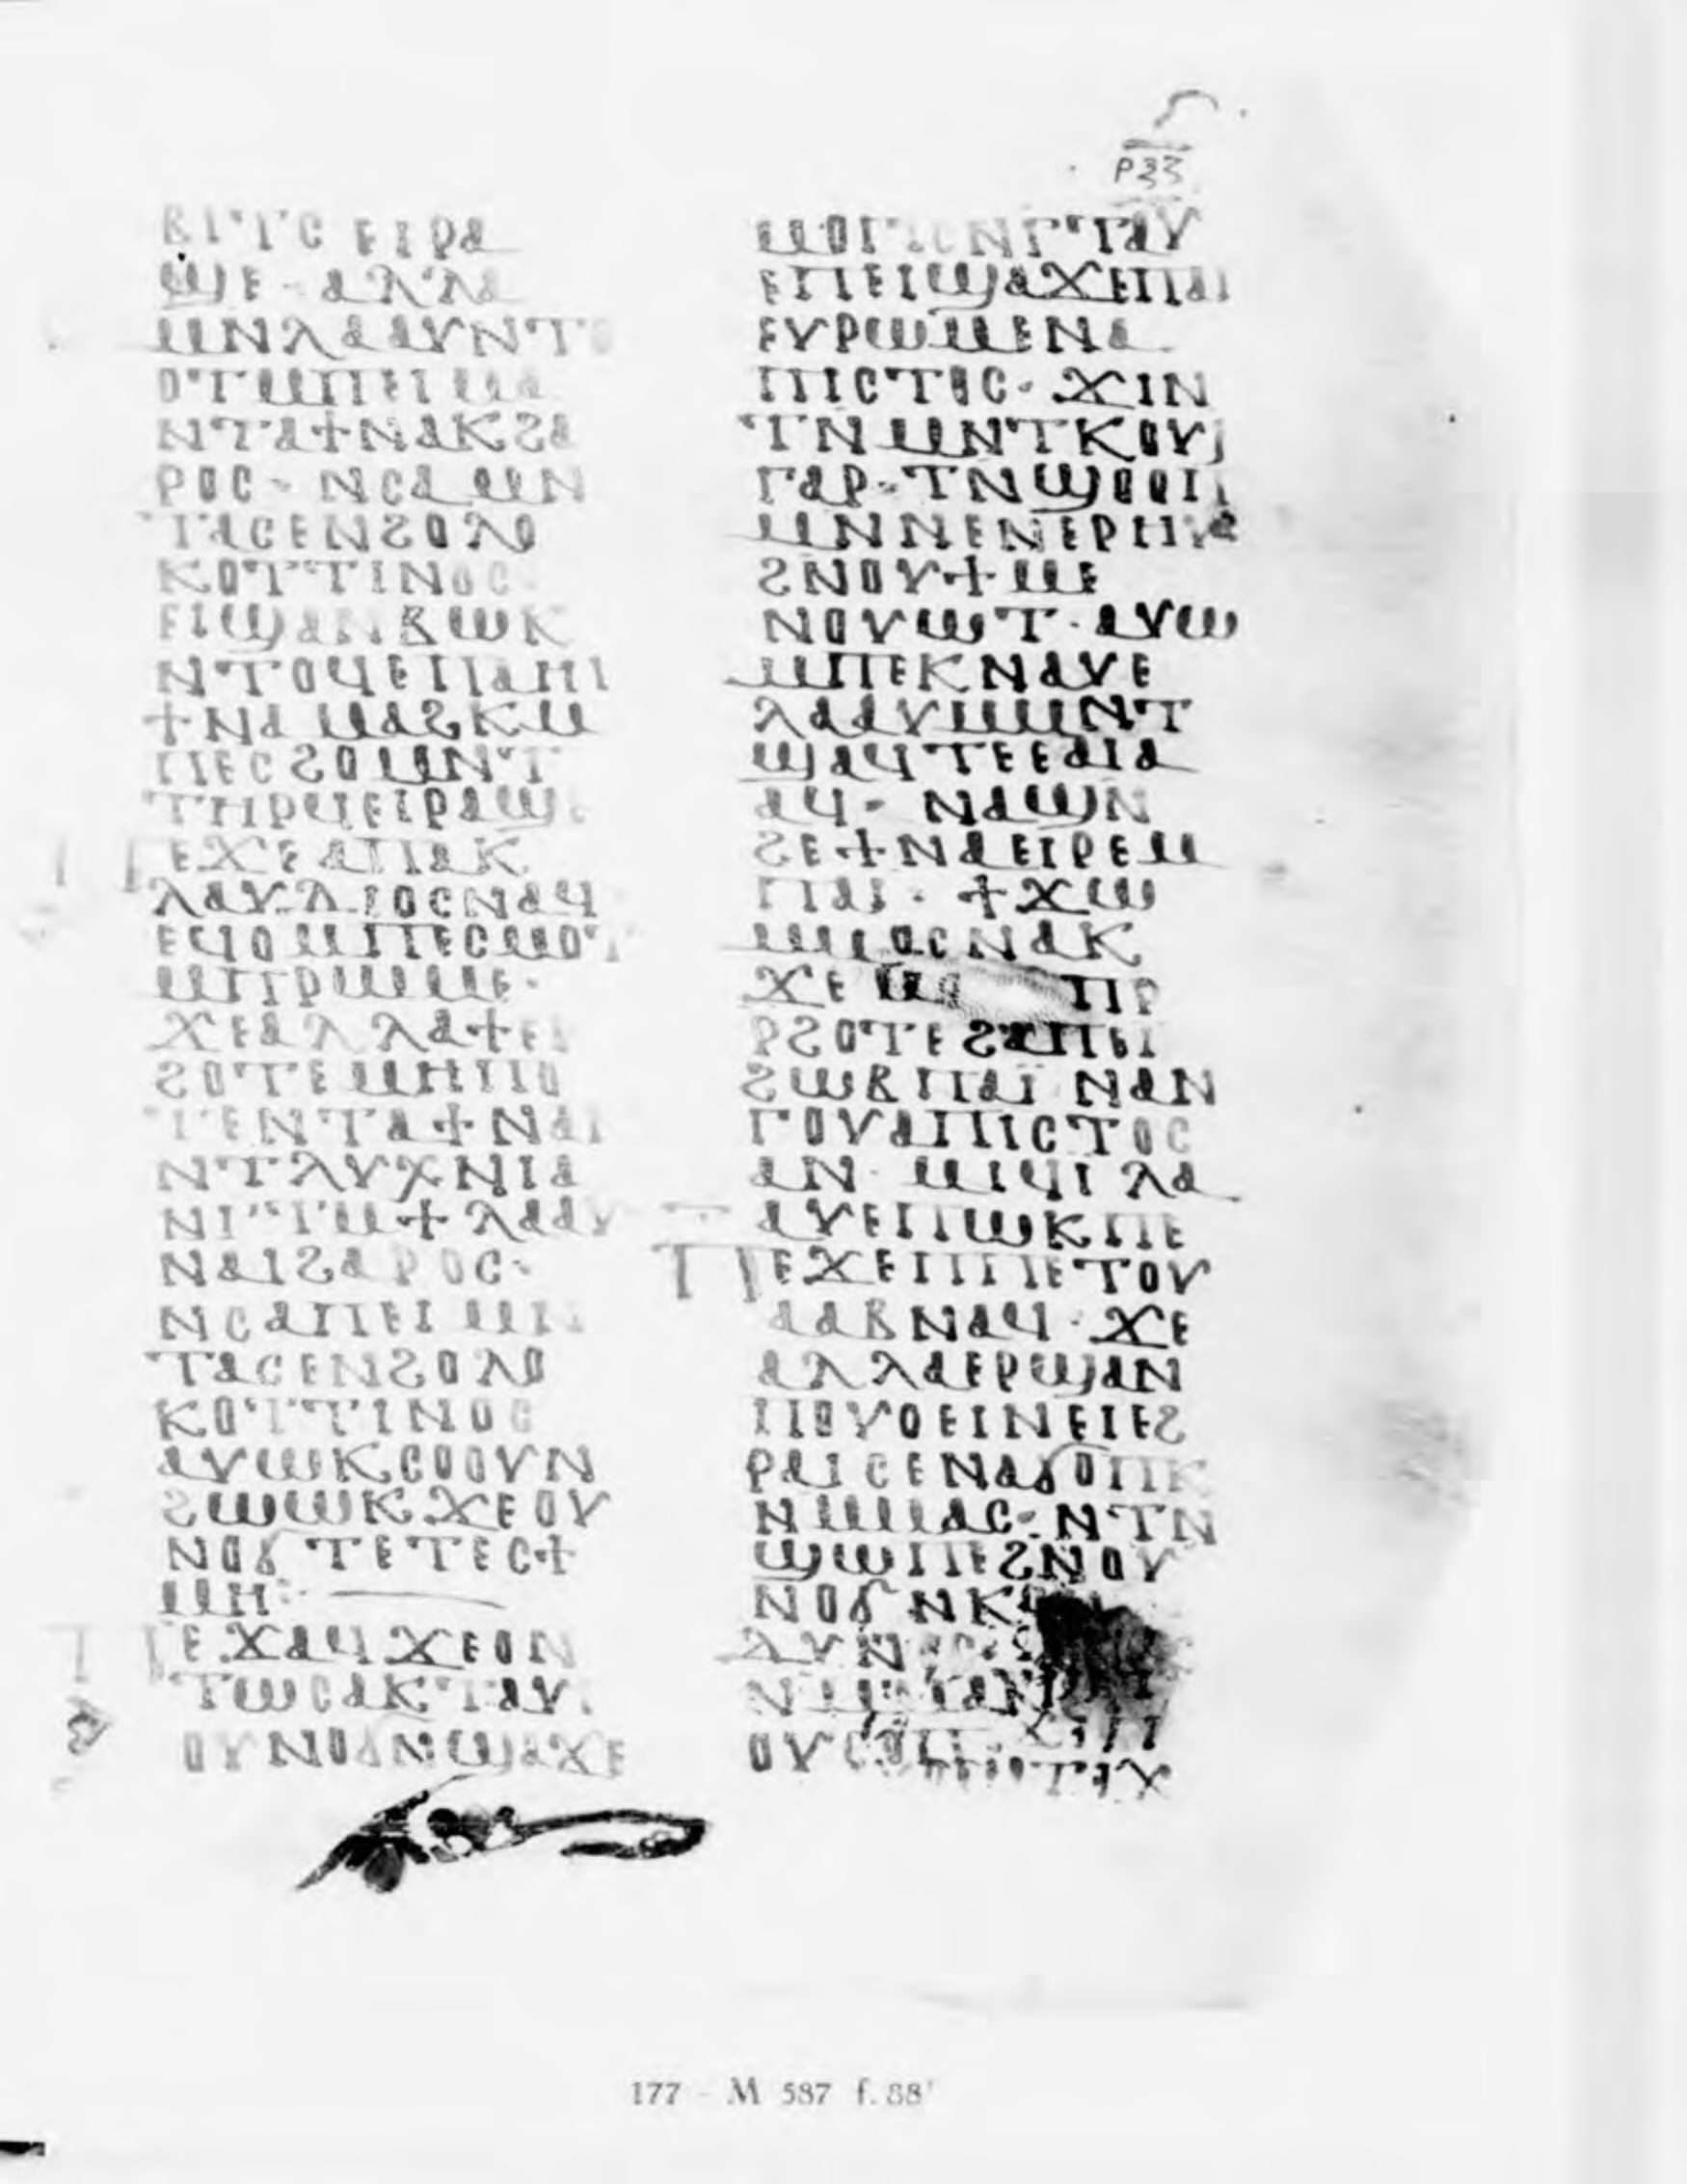 ⲣⲝⲍ
ϣⲉ · ⲁⲗⲗⲁ
ⲙⲛⲗⲁⲁⲩⲛⲧⲟ
ⲟⲧⲙⲡⲉⲓⲙⲁ
ⲛⲧⲁϯⲛⲁⲕϩⲁ
ⲣⲟⲥ · ⲛⲥⲁⲙⲛ
ⲧⲁⲥⲉⲛϩⲟⲗⲟ
ⲕⲟⲧⲧⲓⲛⲟⲥ ·
ⲉⲓϣⲁⲛⲃⲱⲕ
ⲛⲧⲟϥⲉⲡⲁⲏⲓ
ϯⲛⲁⲙⲁϩⲕⲙ
ⲡⲉⲥϩⲟⲙⲛⲧ
ⲧⲏⲣϥⲉⲓⲣⲁϣⲉ
ⲡⲉϫⲉⲁⲡⲁⲕ
ⲗⲁⲩⲇⲓⲟⲥⲛⲁϥ
ⲉϥⲟⲙⲡⲉⲥⲙⲟⲧ
ⲙⲡⲣⲱⲙⲉ ·
ϫⲉⲁⲗⲗⲁϯⲉⲣ
ϩⲟⲧⲉⲙⲏⲡⲟ
ⲧⲉⲛⲧⲁϯⲛⲁⲕ
ⲛⲧⲗⲩⲭⲛⲓⲁ
ⲛⲅⲧⲙϯⲗⲁⲁⲩ
ⲛⲁⲓϩⲁⲣⲟⲥ ·
ⲛⲥⲁⲡⲉⲓⲙⲛ
ⲧⲁⲥⲉⲛϩⲟⲗⲟ
ⲕⲟⲧⲧⲓⲛⲟⲥ
ⲁⲩⲱⲕⲥⲟⲟⲩⲛ
ϩⲱⲱⲕϫⲉⲟⲩ
ⲛⲟϭⲧⲉⲧⲉⲥϯ
ⲙⲏ :
ⲡⲉϫⲁϥϫⲉⲟⲛ
ⲧⲱⲥⲁⲕⲧⲁⲩⲉ
ⲟⲩⲛⲟϭⲛϣⲁϫⲉ
ⲉⲡⲉⲓϣⲁϫⲉⲡⲁⲓ
ⲉⲩⲣⲱⲙⲉⲛⲁ
ⲡⲓⲥⲧⲟⲥ · ϫⲓⲛ
ⲧⲛⲙⲛⲧⲕⲟⲩⲓ
ⲅⲁⲣ · ⲧⲛϣⲟⲟⲡ
ⲙⲛⲛⲉⲛⲉⲣⲏⲩ
ϩⲛⲟⲩϯⲙⲉ
ⲛⲟⲩⲱⲧ · ⲁⲩⲱ
ⲙⲡⲉⲕⲛⲁⲩⲉ
ⲗⲁⲁⲩⲙⲙⲛⲧ
ϣⲁϥⲧⲉⲉⲁⲓⲁ
ⲁϥ · ⲛⲁϣⲛ
ϩⲉϯⲛⲁⲉⲓⲣⲉⲙ
ⲡⲁⲓ · ϯϫⲱ
ⲙⲙⲟⲥⲛⲁⲕ
ϫⲉ ⲡⲣ
ⲣϩⲟⲧⲉϩⲙⲡⲉⲓ
ϩⲱⲃⲡⲁⲓ ⲛⲁⲛ
ⲅⲟⲩⲁⲡⲓⲥⲧⲟⲥ
ⲁⲛ · ⲙⲓϥⲓ ⲗⲁ
ⲁⲩⲉⲡⲱⲕⲡⲉ
ⲡⲉϫⲉⲡⲡⲉⲧⲟⲩ
ⲁⲁⲃⲛⲁϥ · ϫⲉ
ⲁⲗⲗⲁⲉⲣϣⲁⲛ
ⲡⲟⲩⲟⲉⲓⲛⲉⲓⲉϩ
ⲣⲁⲓⲥⲉⲛⲁϭⲟⲡⲕ
ⲛⲙⲙⲁⲥ · ⲛⲧⲛ
ϣⲱⲡⲉϩⲛⲟⲩ
ⲛⲟϭ
177 - M 587 f. 88